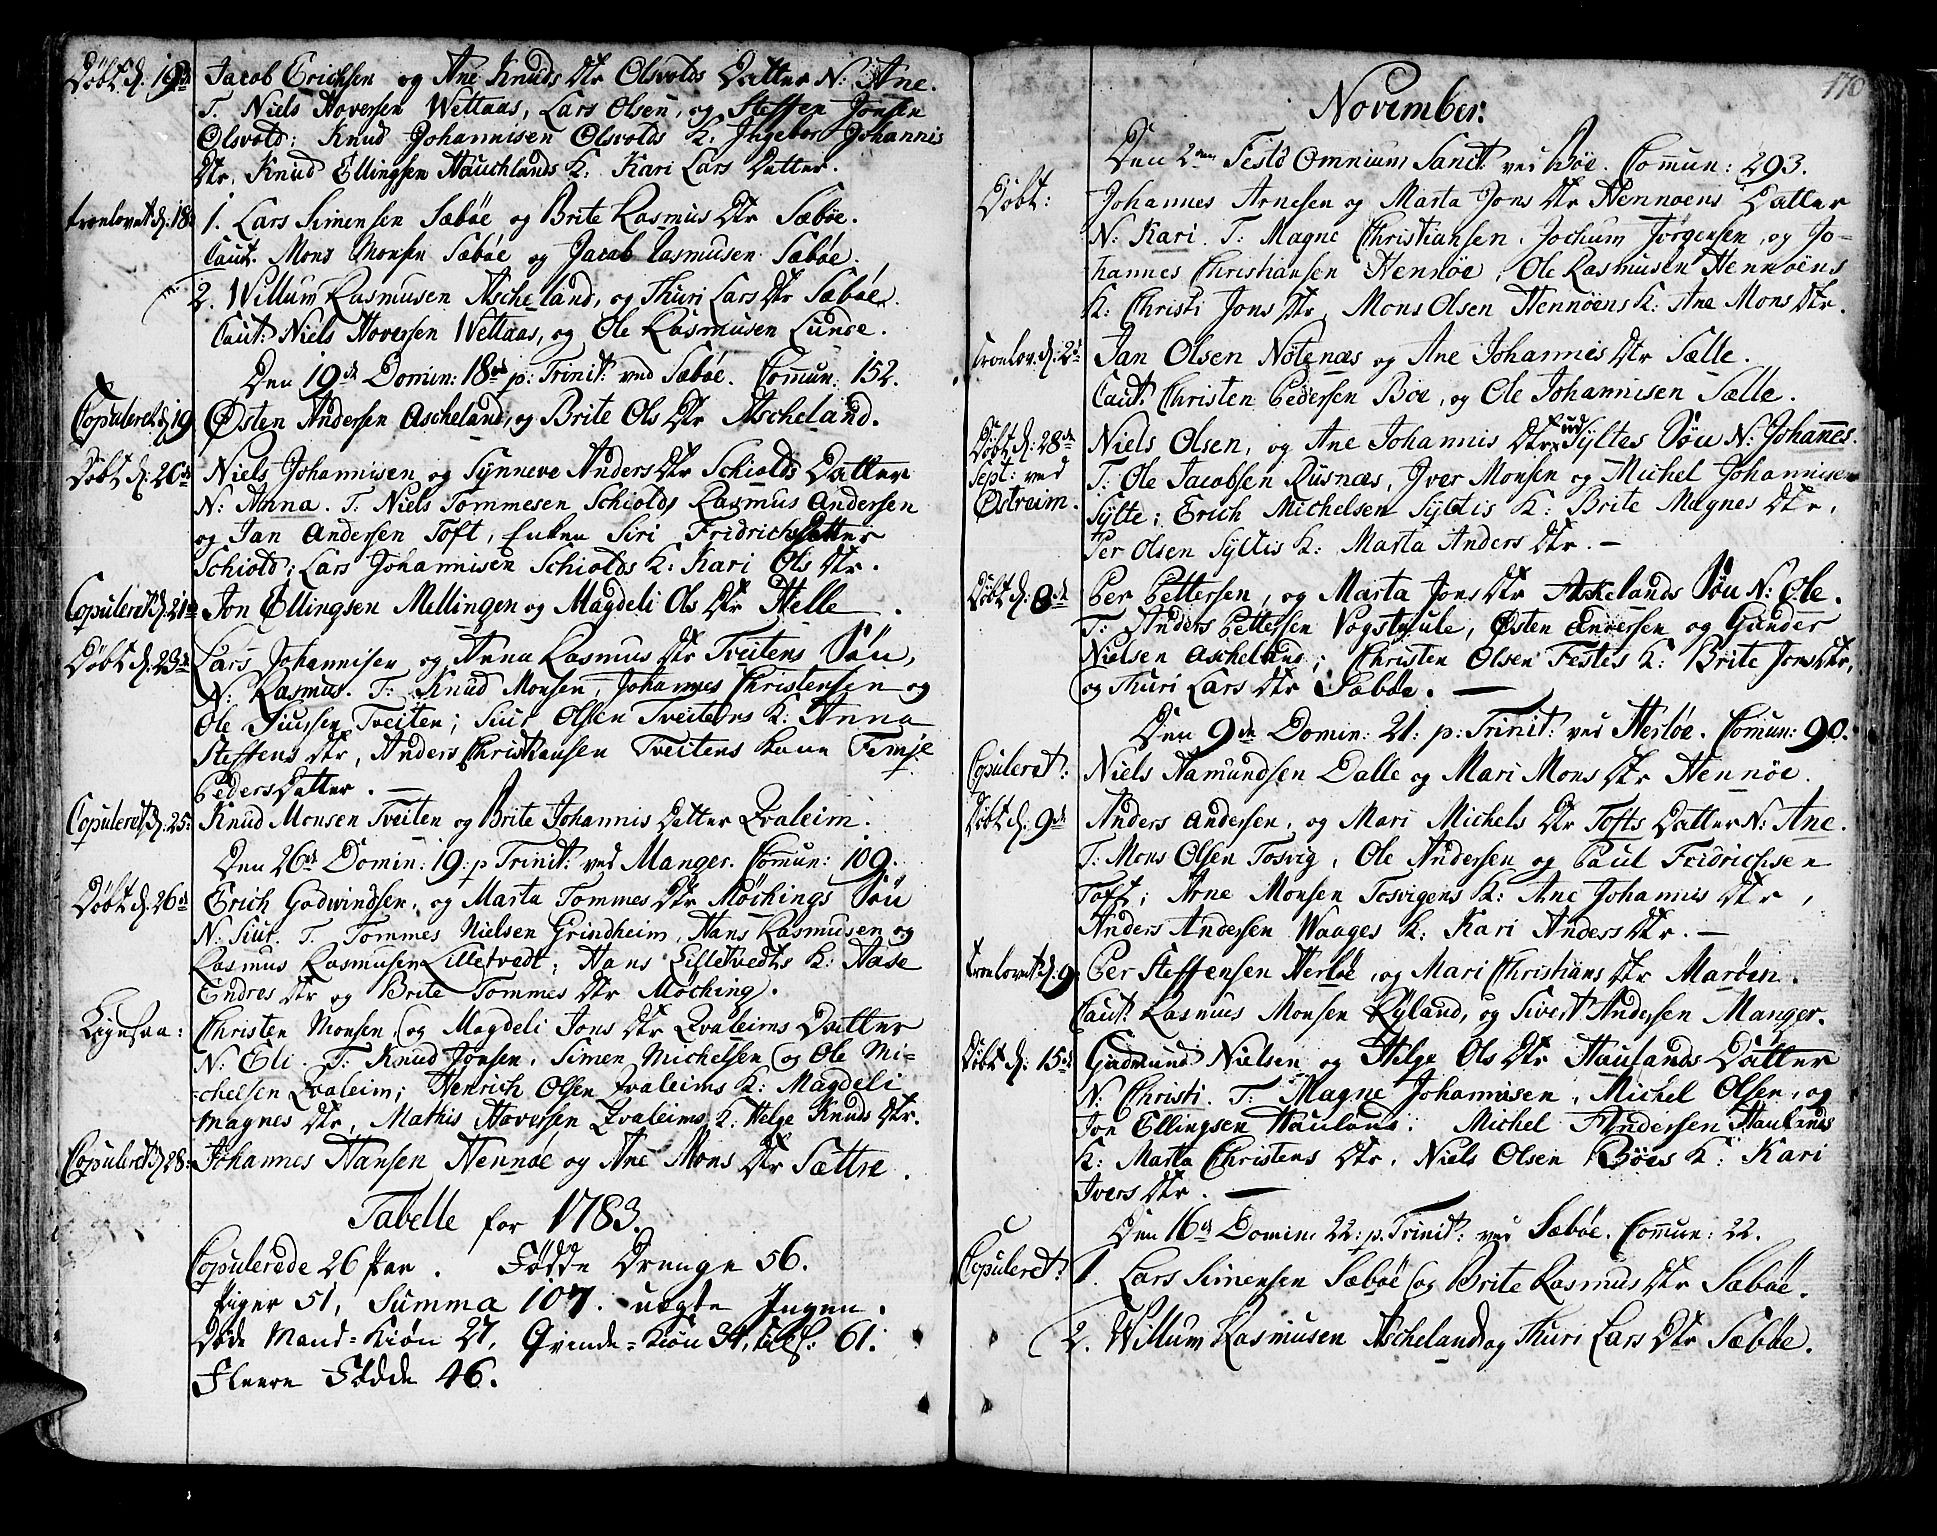 Döbt d. 19de Jacob Erichsen og Ane Knuds Dtr Olsvolds Datter N: Ane.
T. Niels Hoversen Wettaas, Lars Olsen, og Steffen Jonsen
Olsvold: Knud Johannisen Olsvolds K: Ingebor Johannis
Dtr, Knud Ellingsen Hauchlands K: Kari Lars Datter.
Trolovet d. 18: 1. Lars Simensen Sæböe og Brite Rasmus Dtr Sæböe.
Caut. Mons Monsen Sæböe og Jacob Rasmusen Sæböe.
2. Willum Rasmusen Ascheland, og Thuri Lars Dtr Sæböe.
Caut: Niels Hoversen Wettaas, og Ole Rasmusen Lunde.
Den 19de Domin: 18de p: Trinit: ved Sæböe. Commun: 152.
Copuleret d. 19 Østen Andersen Ascheland, og Brite Ols Dtr Ascheland.
Döbt d. 20de Niels Johannisen og Synneve Anders Dtr Schiolds Datter
N: Anna. T. Niels Tommesen Schiold, Rasmus Andersen
og Jan Andersen Toft, Enken Siri Fridrichs Datter
Schiold; Lars Johannisen Schiolds K: Kari Ols Dtr.
Copuleret d. 21de Jon Ellingsen Mellingen og Magdeli Ols Dtr Helle.
Döbt d. 23de Lars Johannisen og Anna Rasmus Dtr Tveitens Sön,
N: Rasmus. T: Knud Monsen, Johannes Christensen og
Ole Siursen Tveiten; Siur Olsen Tveitens K: Anna
Steffens Dtr, Anders Christiansen Tveitens kone Femje
Peders Datter. —
Copuleret d. 25: Knud Monsen Tveiten og Brite Johannis Datter Qvaleim.
Den 26de Domin: 19. p Trinit: ved Manger. Commun: 109.
Döbt d. 26de Erich Godwindsen, og Marta Tommes Dtr Möchings Sön
N: Siur. T. Tommes Nielsen Grindheim, Hans Rasmusen og
Rasmus Rasmusen Lilletvedt; Hans Lilletvedts K: Aase
Endres Dtr og Brite Tommes Dtr Möching.
Ligesaa: Christen Monsen, og Magdeli Jons Dtr Qvaleims Datter
N: Eli. T: Knud Jonsen, Simen Michelsen og Ole Mi-
chelsen Qvaleim; Henrich Olsen Qvaleims K: Magdeli
Magnes Dtr, Mathis Hoversen Qvaleims K: Helge Knuds Dtr.
Copuleret d. 28: Johannes Hansen Hennöe og Ane Mons Dtr Sættre.
Tabelle for 1783.
Copulerede 26 Par. Födde Drenge 56.
Piger 51, Summa 107. uegte Ingen.
Döde Mand-Kiön 27, Qvinde-Kiön 34, 61.
Fleere Födde 46.
170
November:
Den 2den Festo Omnium Sanct. ved Böe. Commun: 293.
Döbt: Johannes Arnesen og Marta Jons Dtr Hennöens Datter
N: Kari. T: Magne Christiansen, Jochum Jörgensen, og Jo-
hannes Christiansen Hennöe, Ole Rasmusen Hennöens
K: Christi Jons Dtr, Mons Olsen Hennöens K: Ane Mons Dtr.
Trolov: d. 2de Jan Olsen Nötenæs og Ane Johannis Dtr Sælle.
Caut. Christen Pedersen Böe, og Ole Johannisen Sælle.
Döbt d. 28de Niels Olsen, og Ane Johannis Dtr Syltes Sön N: Johannes.
Sept: ved T: Ole Jacobsen Rusnæs, Iver Monsen og Michel Johannisen
Østreim. Sylte; Erich Michelsen Syltis K: Brite Magnes Dtr,
Per Olsen Syltis K: Marta Anders Dtr. —
Döbt d. 8de Per Pettersen, og Marta Jons Dtr Askelands Sön N: Ole.
T: Anders Pettersen Vogstqule, Østen Andersen og Gunder
Nielsen Ascheland; Christen Olsen Festes K: Brite Jons Dtr,
og Thuri Lars Dtr Sæböe. —
Den 9de Domin: 21: p: Trinit: ved Herlöe. Commun: 90.
Copuleret: Niels Aamundsen Dalle og Mari Mons Dtr Hennöe.
Döbt d. 9de Anders Andersen, og Mari Michels Dtr Tofts Datter N: Ane.
T: Mons Olsen Tosvig, Ole Andersen og Paul Fridrichsen
Toft; Arne Monsen Tosvigens K: Ane Johannis Dtr,
Anders Andersen Waages K: Kari Anders Dtr. —
Trolovet d. 9 Per Steffensen Herlöe, og Mari Christians Dtr Maröen.
Caut. Rasmus Monsen Ryland, og Sivert Andersen Manger.
Döbt d. 15de Gudmund Nielsen og Helge Ols Dtr Haulands Datter
N: Christi. T: Magne Johannisen, Michel Olsen, og
Jon Ellingsen Hauland. Michel Andersen Haulands
K: Marta Christens Dtr, Niels Olsen Böes K: Kari
Ivers Dtr. —
Den 16de Domin: 22: p. Trinit: ved Sæböe. Commun: 22.
Copuleret: 1. Lars Simensen Sæböe og Brite Rasmus Dtr Sæböe.
2. Willum Rasmusen Ascheland og Thuri Lars Dtr Sæböe.